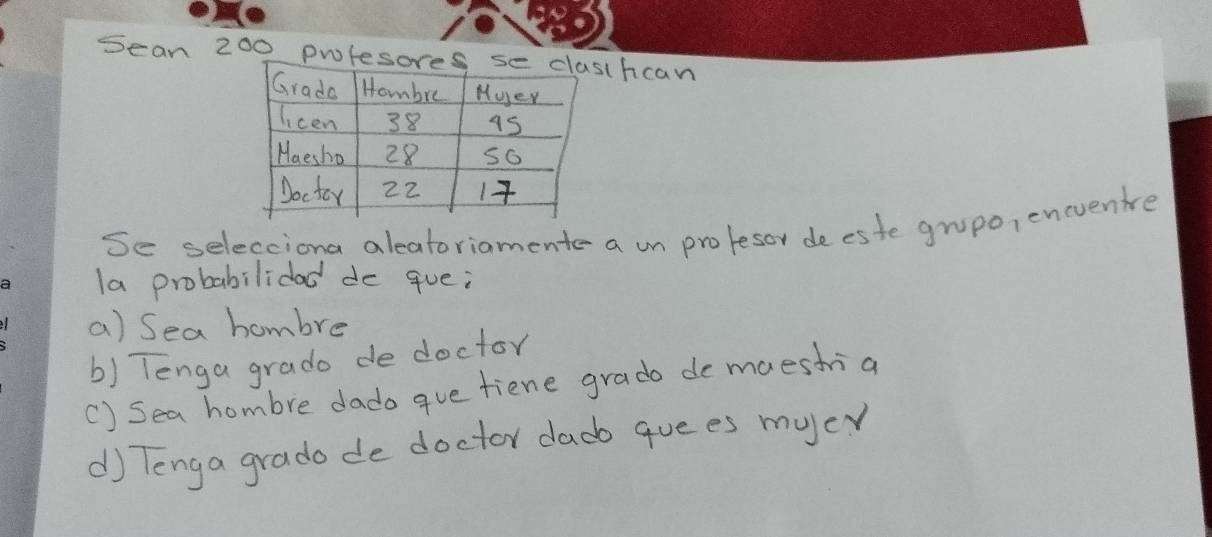 Sean 200 profesores se clasifican
Grado Hombre Mujer
licen 38 45
Maestro 28 50
Doctor 22 17
Se selecciona aleatoriamente a un profesor de este grupo, encuentre
la probabilidad de que:
a) Sea hombre
b) Tenga grado de doctor
c) Sea hombre dado que tiene grado de maestria
d) Tenga grado de doctor dado que es mujer
a
el
s